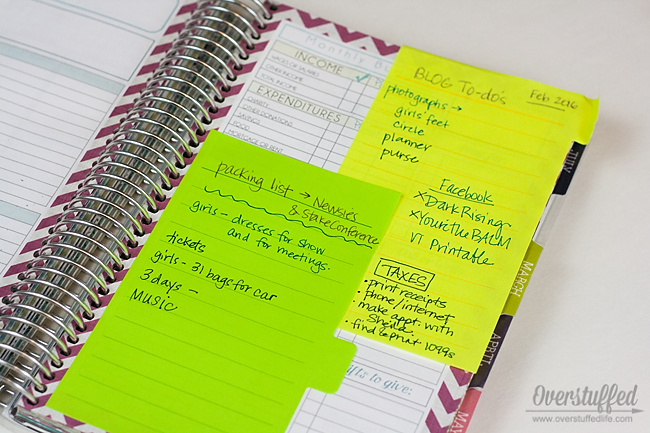 Monthly B
INCOME
WAGES OR SALARIES
OTHER INCOME
TOTAL INCOME
EXPENDITURES
CHARITY
OTHER DONATIONS
SAVINGS
FOOD
MORTGAGE OR RENT
BLOG To-do's
Feb 2016
photographs →
girls' feet
circle
planner
purse
Facebook
x Dark Rising
x You're the BALM
VT Printable
TAXES
• print receipts
• phone/internet
• make appt. with
Sheila
• find & print 1099s
packing list → Newsies
& Stake Conference
girls - dresses for show
and for meetings.
tickets
girls - 31 bags for car
3 days -
MUSIC
ifts to give:
MARCH
APRIL
MAY
Overstuffed
www.overstuffedlife.com